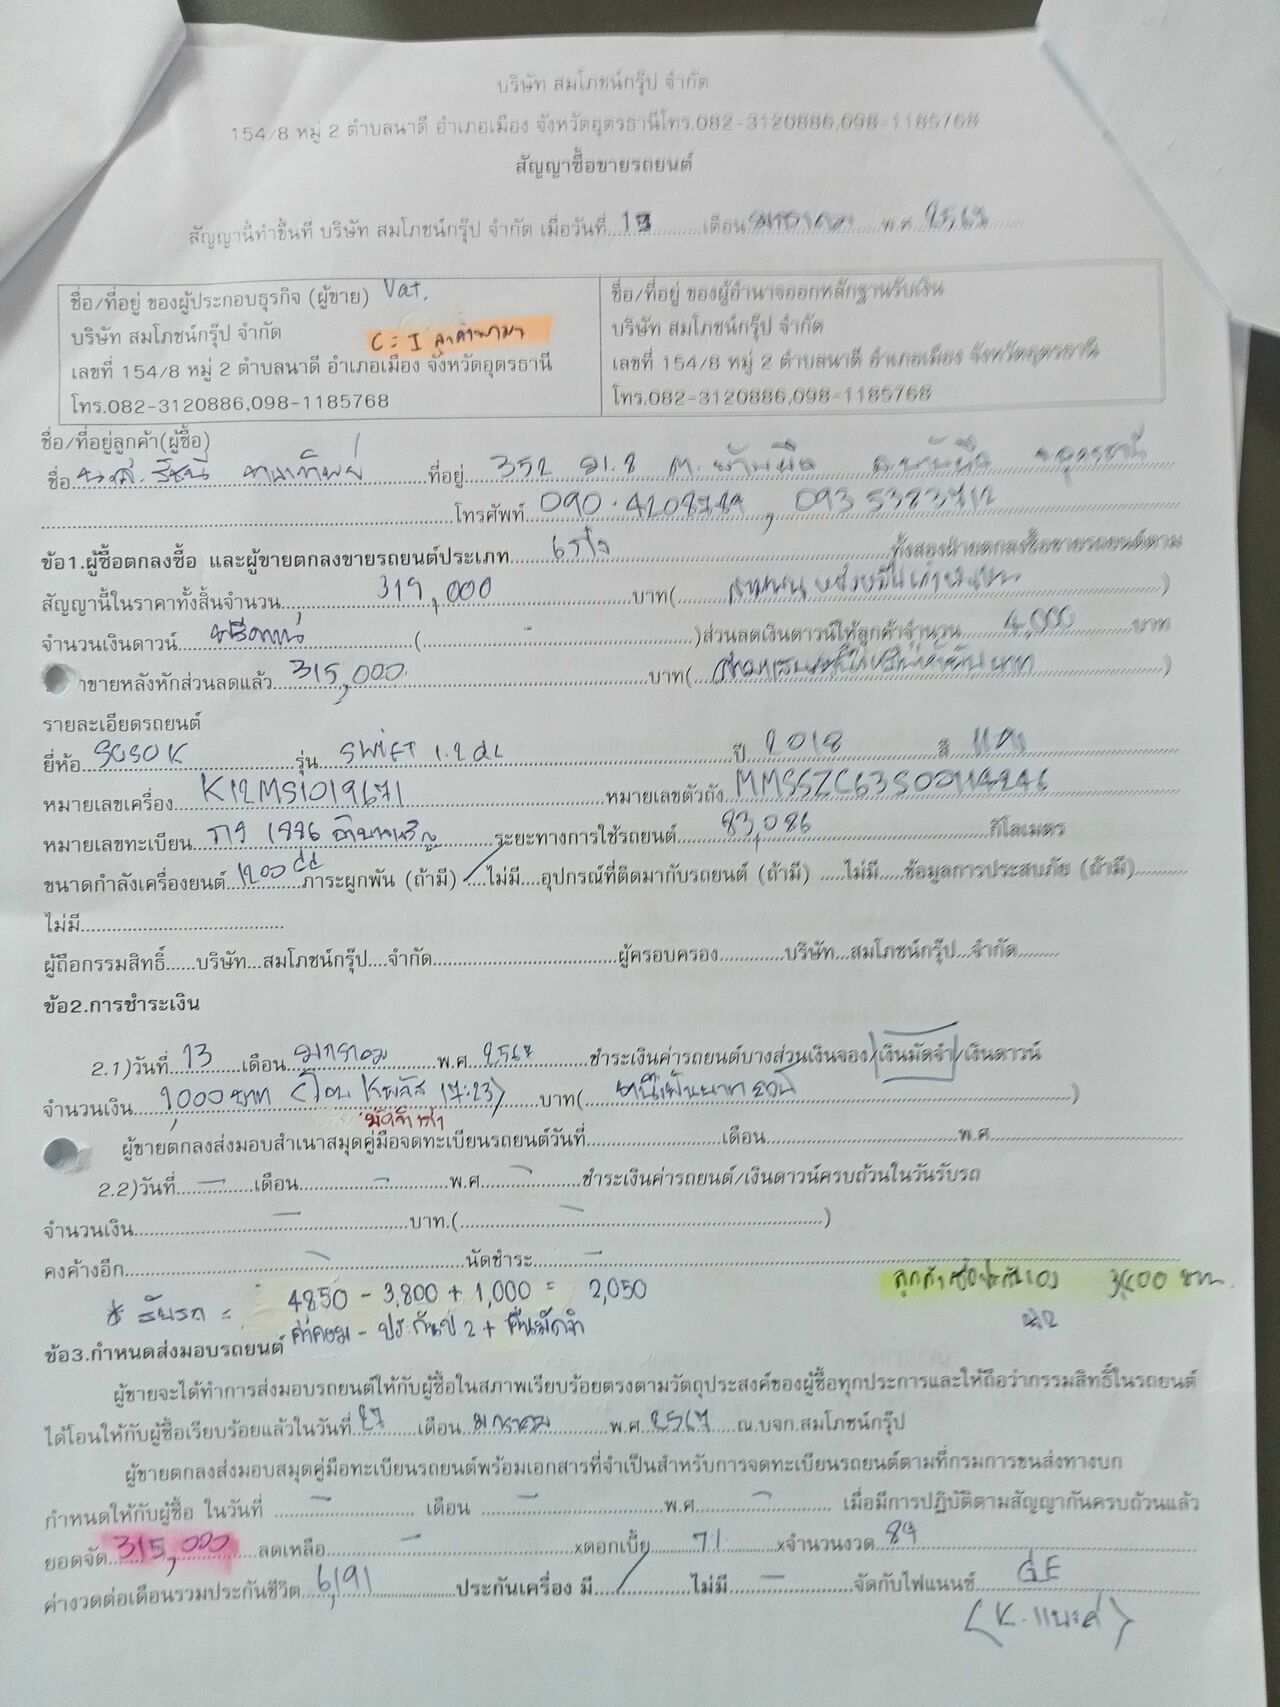 บริษัท สมโภชน์กรุ๊ป จำกัด
154/8 หมู่ 2 ตำบลนาดี อำเภอเมือง จังหวัดอุดรธานีโทร.082-3120886,098-1185768
สัญญาซื้อขายรถยนต์
สัญญานี้ทำขึ้นที่ บริษัท สมโภชน์กรุ๊ป จำกัด เมื่อวันที่ 13 เดือน มกราคม พ.ศ 2567
ชื่อ/ที่อยู่ ของผู้ประกอบธุรกิจ (ผู้ขาย) Vat.
บริษัท สมโภชน์กรุ๊ป จำกัด C = I ลูกค้าพามา
เลขที่ 154/8 หมู่ 2 ตำบลนาดี อำเภอเมือง จังหวัดอุดรธานี
โทร.082-3120886,098-1185768
ชื่อ/ที่อยู่ ของผู้อำนาจออกหลักฐานรับเงิน
บริษัท สมโภชน์กรุ๊ป จำกัด
เลขที่ 154/8 หมู่ 2 ตำบลนาดี อำเภอเมือง จังหวัดอุดรธานี
โทร.082-3120886,098-1185768
ชื่อ/ที่อยู่ลูกค้า(ผู้ซื้อ)
ชื่อ น.ส. รัชนี ที่อยู่ 352 ม.8 ต.บ้านผือ อ.บ้านผือ จ.อุดรธานี
โทรศัพท์ 090-4208789, 093 5383712
ข้อ1.ผู้ซื้อตกลงซื้อ และผู้ขายตกลงขายรถยนต์ประเภท เก๋ง ทั้งสองฝ่ายตกลงซื้อขายรถยนต์ตาม
สัญญานี้ในราคาทั้งสิ้นจำนวน 319,000 บาท( สามแสนหนึ่งหมื่นเก้าพันบาท )
จำนวนเงินดาวน์ ฟรีดาวน์ ( - )ส่วนลดเงินดาวน์ให้ลูกค้าจำนวน 4,000 บาท
าขายหลังหักส่วนลดแล้ว 315,000 บาท( สามแสนหนึ่งหมื่นห้าพันบาท )
รายละเอียดรถยนต์
ยี่ห้อ SUSUK รุ่น SWIFT 1.2 GL ปี 2018 สี แดง
หมายเลขเครื่อง K12MS1019671 หมายเลขตัวถัง MMSSZC63S00114246
หมายเลขทะเบียน กว 1996 อำนาจเจริญ ระยะทางการใช้รถยนต์ 83,086 กิโลเมตร
ขนาดกำลังเครื่องยนต์ 1200 cc ภาระผูกพัน (ถ้ามี) / ไม่มี อุปกรณ์ที่ติดมากับรถยนต์ (ถ้ามี) ไม่มี ข้อมูลการประสบภัย (ถ้ามี)
ไม่มี
ผู้ถือกรรมสิทธิ์ บริษัท สมโภชน์กรุ๊ป จำกัด ผู้ครอบครอง บริษัท สมโภชน์กรุ๊ป จำกัด
ข้อ2.การชำระเงิน
2.1)วันที่ 13 เดือน มกราคม พ.ศ 2567 ชำระเงินค่ารถยนต์บางส่วนเงินจอง/เงินมัดจำ/เงินดาวน์
จำนวนเงิน 1,000 บาท (โอน 17:23) บาท( หนึ่งพันบาทถ้วน )
มัดจำเช่า
ผู้ขายตกลงส่งมอบสำเนาสมุดคู่มือจดทะเบียนรถยนต์วันที่ เดือน พ.ศ
2.2)วันที่ - เดือน - พ.ศ - ชำระเงินค่ารถยนต์/เงินดาวน์ครบถ้วนในวันรับรถ
จำนวนเงิน - บาท.( - )
คงค้างอีก - นัดชำระ -
ลูกค้าซื้อประกันเอง 3,800 บาท.
* รับรถ = 4850 - 3,800 + 1,000 = 2,050
ค่าคอม - ประกันป.2 + คืนมัดจำ
ข้อ3.กำหนดส่งมอบรถยนต์
ผู้ขายจะได้ทำการส่งมอบรถยนต์ให้กับผู้ซื้อในสภาพเรียบร้อยตรงตามวัตถุประสงค์ของผู้ซื้อทุกประการและให้ถือว่ากรรมสิทธิ์ในรถยนต์
ได้โอนให้กับผู้ซื้อเรียบร้อยแล้วในวันที่ 27 เดือน มกราคม พ.ศ 2567 ณ.บจก.สมโภชน์กรุ๊ป
ผู้ขายตกลงส่งมอบสมุดคู่มือทะเบียนรถยนต์พร้อมเอกสารที่จำเป็นสำหรับการจดทะเบียนรถยนต์ตามที่กรมการขนส่งทางบก
กำหนดให้กับผู้ซื้อ ในวันที่ - เดือน - พ.ศ - เมื่อมีการปฏิบัติตามสัญญากันครบถ้วนแล้ว
ยอดจัด 315,000 ลดเหลือ - xดอกเบี้ย 71 xจำนวนงวด 84
ค่างวดต่อเดือนรวมประกันชีวิต 6,191 ประกันเครื่อง มี / ไม่มี - จัดกับไฟแนนซ์ GE